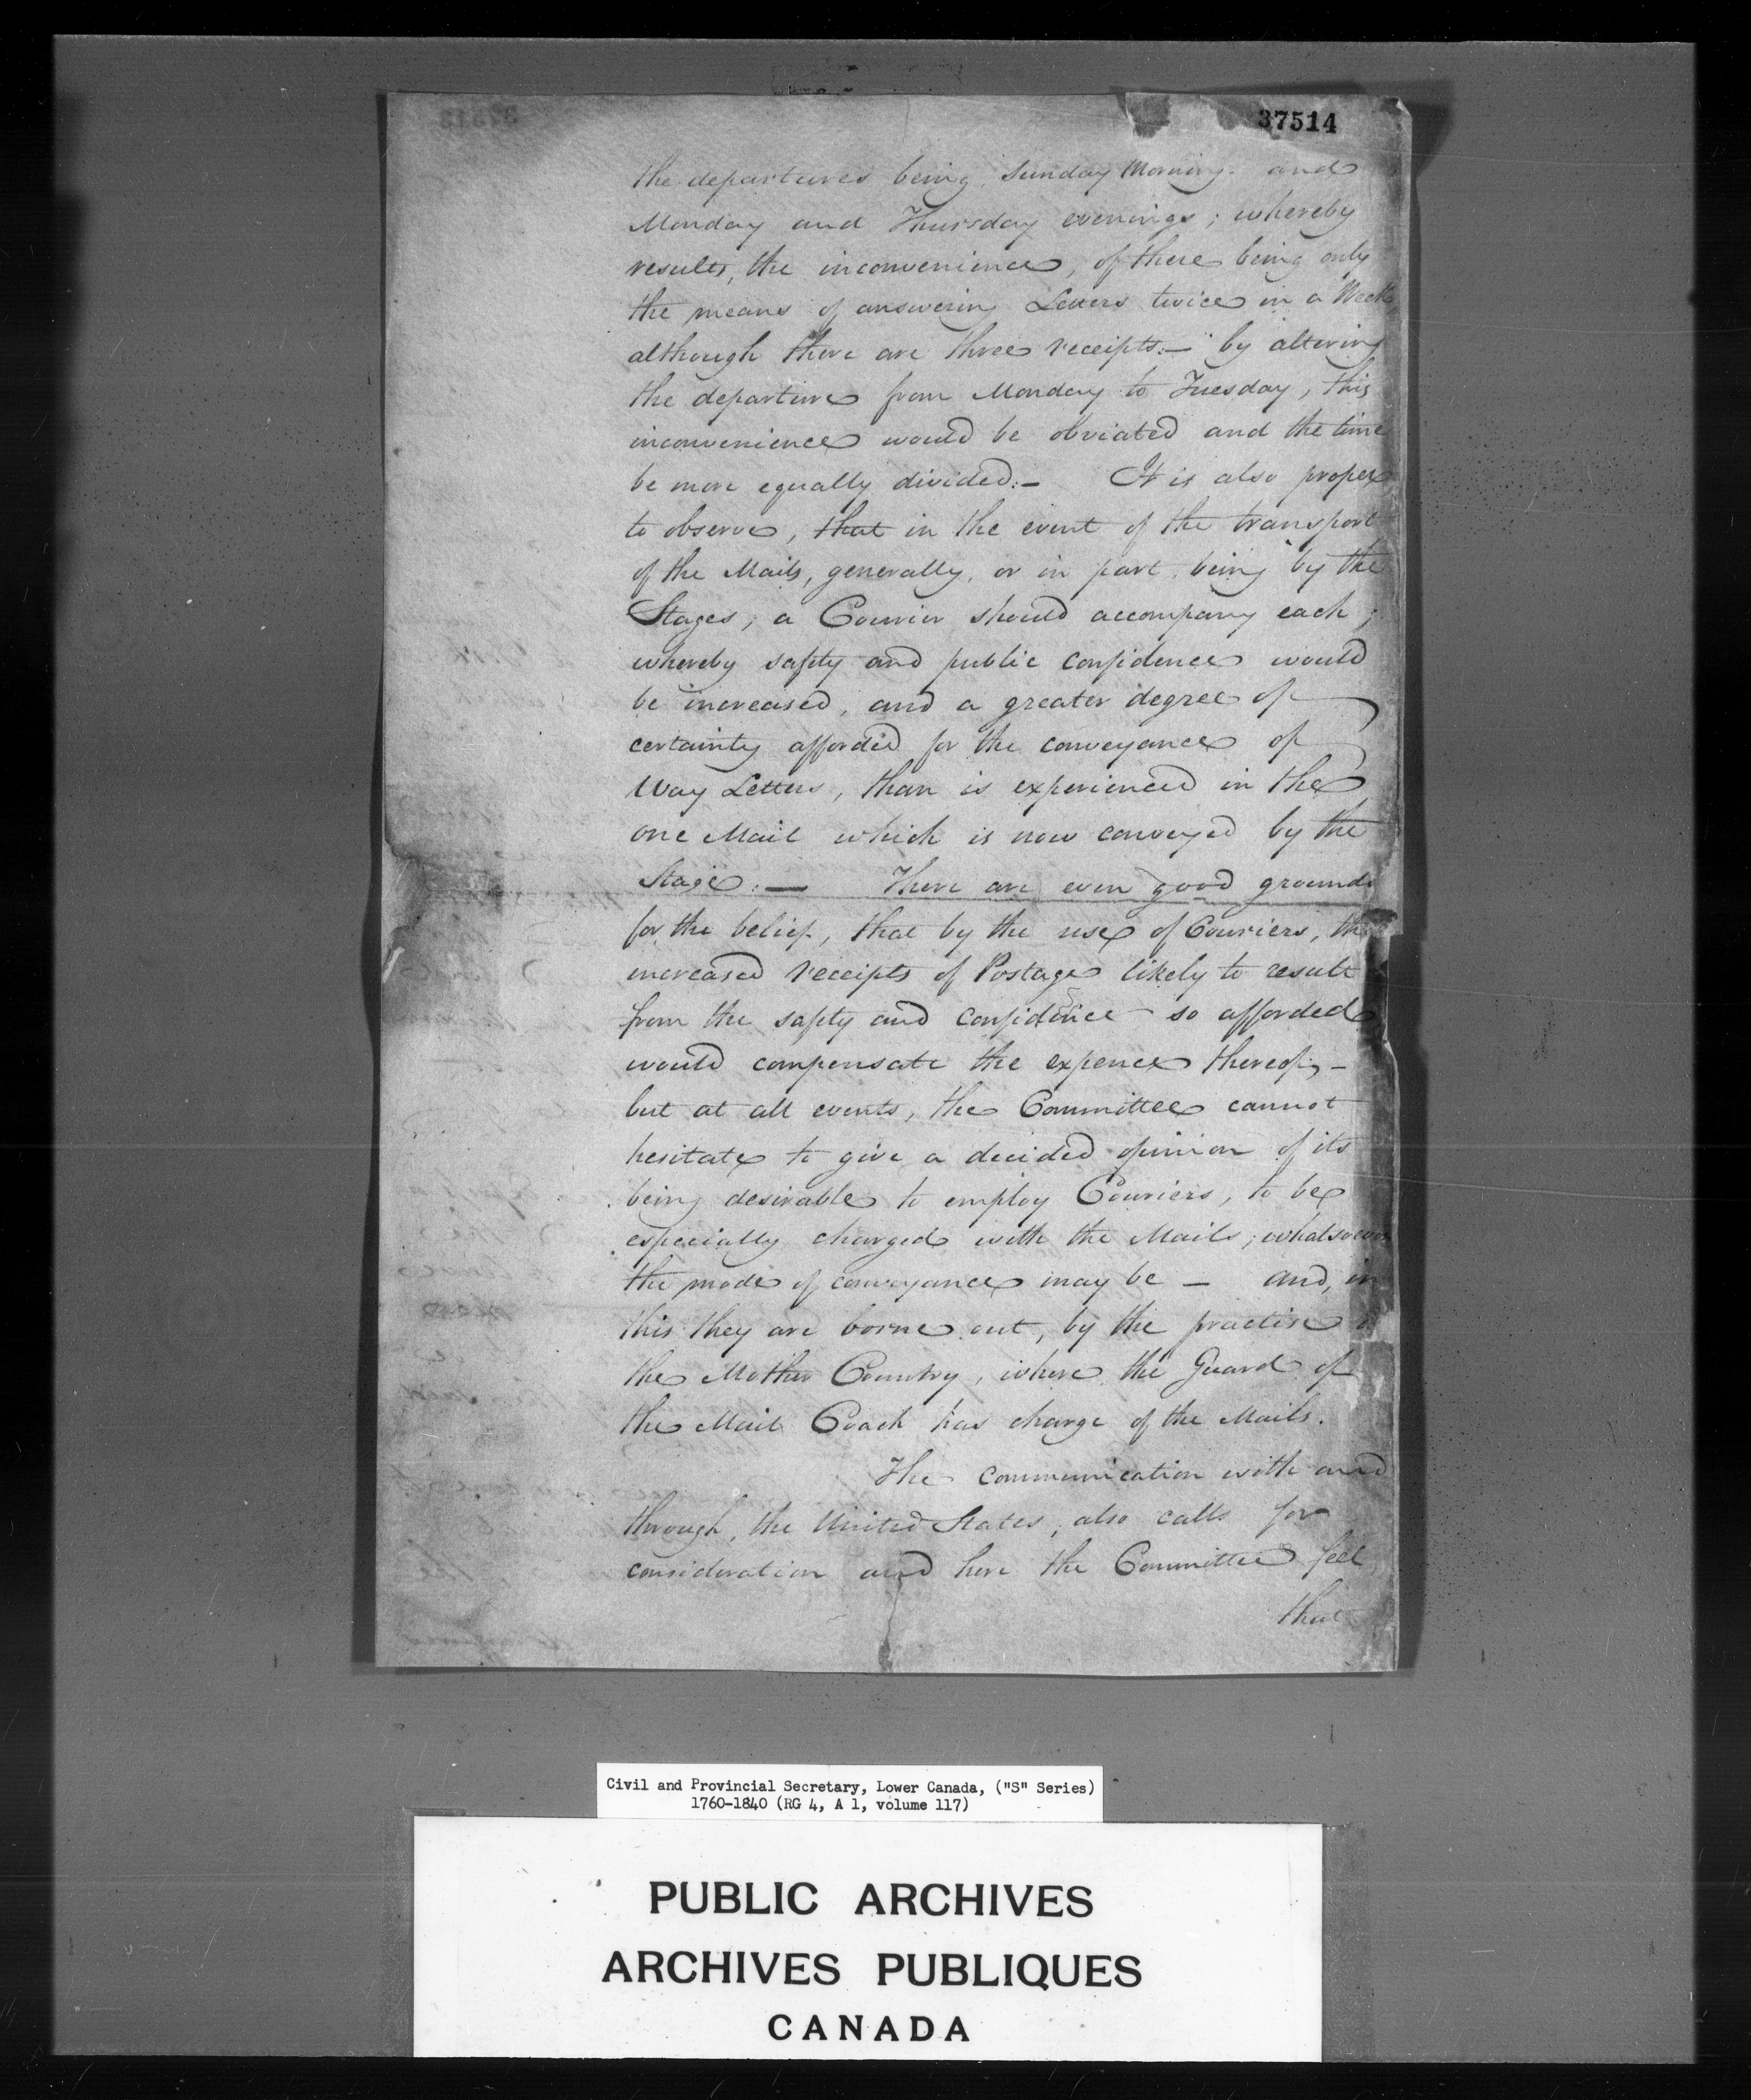 37514
the departures being Sunday Morning and
Monday and Thursday evenings; whereby
results, the inconvenience, of there being only
the means of answering Letters twice in a Week,
although there are three receipts:— by altering
the departure from Monday to Tuesday, this
inconvenience would be obviated and the time
be more equally divided:— It is also proper
to observe, that in the event of the transport
of the Mails, generally, or in part, being by the
Stages, a Courier should accompany each;
whereby safety and public confidence would
be increased, and a greater degree of
certainty afforded for the conveyance of
Way Letters, than is experienced in the
one Mail which is now conveyed by the
Stage:— There are even good grounds
for the belief, that by the use of Couriers, the
increased receipts of Postage likely to result
from the safety and confidence so afforded
would compensate the expence thereof,—
but at all events, the Committee cannot
hesitate to give a decided opinion of its
being desirable to employ Couriers, to be
especially charged with the Mails; whatsoever
the mode of conveyance may be — and, in
this they are borne out, by the practise
the Mother Country, where the Guard of
the Mail Coach has charge of the Mails.
The communication with and
through, the United States, also calls for
consideration and here the Committee feel
that
Civil and Provincial Secretary, Lower Canada, ("S" Series)
1760-1840 (RG 4, A 1, volume 117)
PUBLIC ARCHIVES
ARCHIVES PUBLIQUES
CANADA